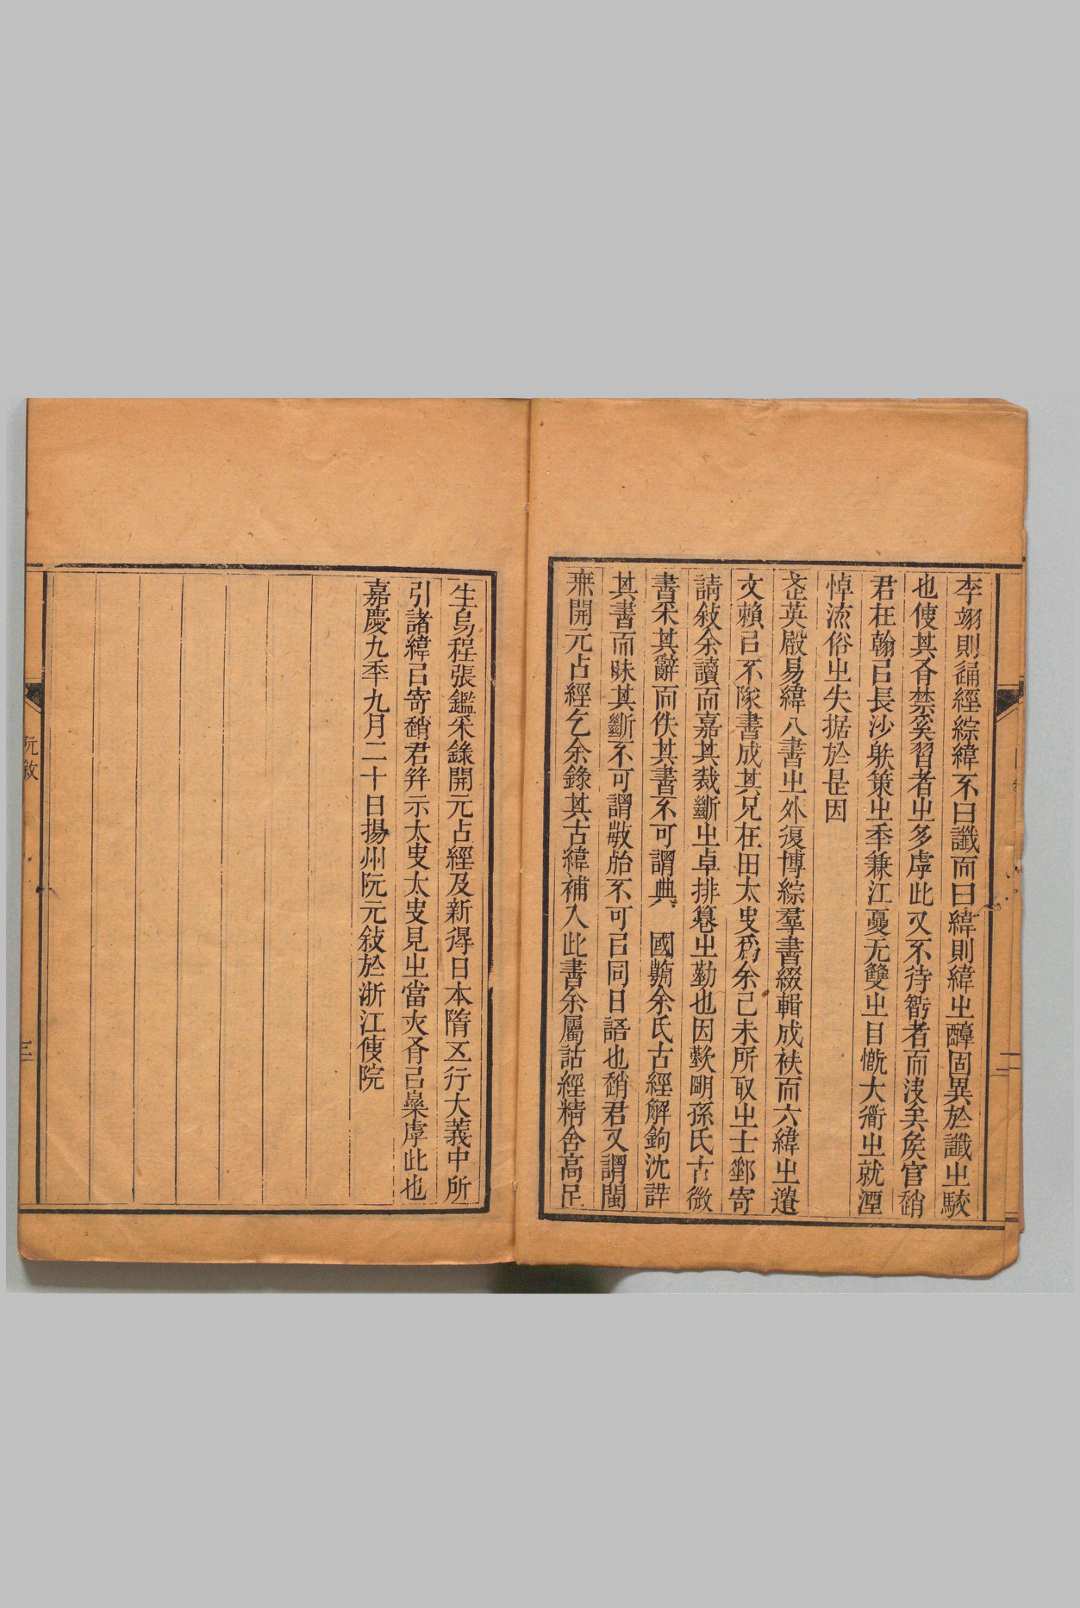 李翊則誦經綜緯不曰讖而曰緯則緯㞢醇固異於讖㞢駁
也使其有禁奚習者㞢多虖此又不待智者而決矣侯官趙
君在翰㠯長沙射策㞢年兼江夏无雙㞢目慨大衢㞢就湮
悼流俗㞢失据於是因
武英殿易緯八書㞢外復博綜羣書綴輯成袟而六緯㞢遺
文賴㠯不隊書成其兄在田太史爲余己未所取㞢士郵寄
請敍余讀而嘉其裁斷㞢卓排纂㞢勤也因歎朙孫氏古微
書采其辭而佚其書不可謂典 國朝余氏古經解鉤沈詳
其書而昧其斷不可謂不可㠯同日語也趙君又謂閩
無開元占經乞余錄其古緯補入此書余屬詁經精舍高足
生烏程張鑑采錄開元占經及新得日本隋五行大義中所
引諸緯㠯寄趙君并示太史太史見㞢當亦有㠯樂虖此也
嘉慶九年九月二十日揚州阮元敍於浙江使院
阮敘
三